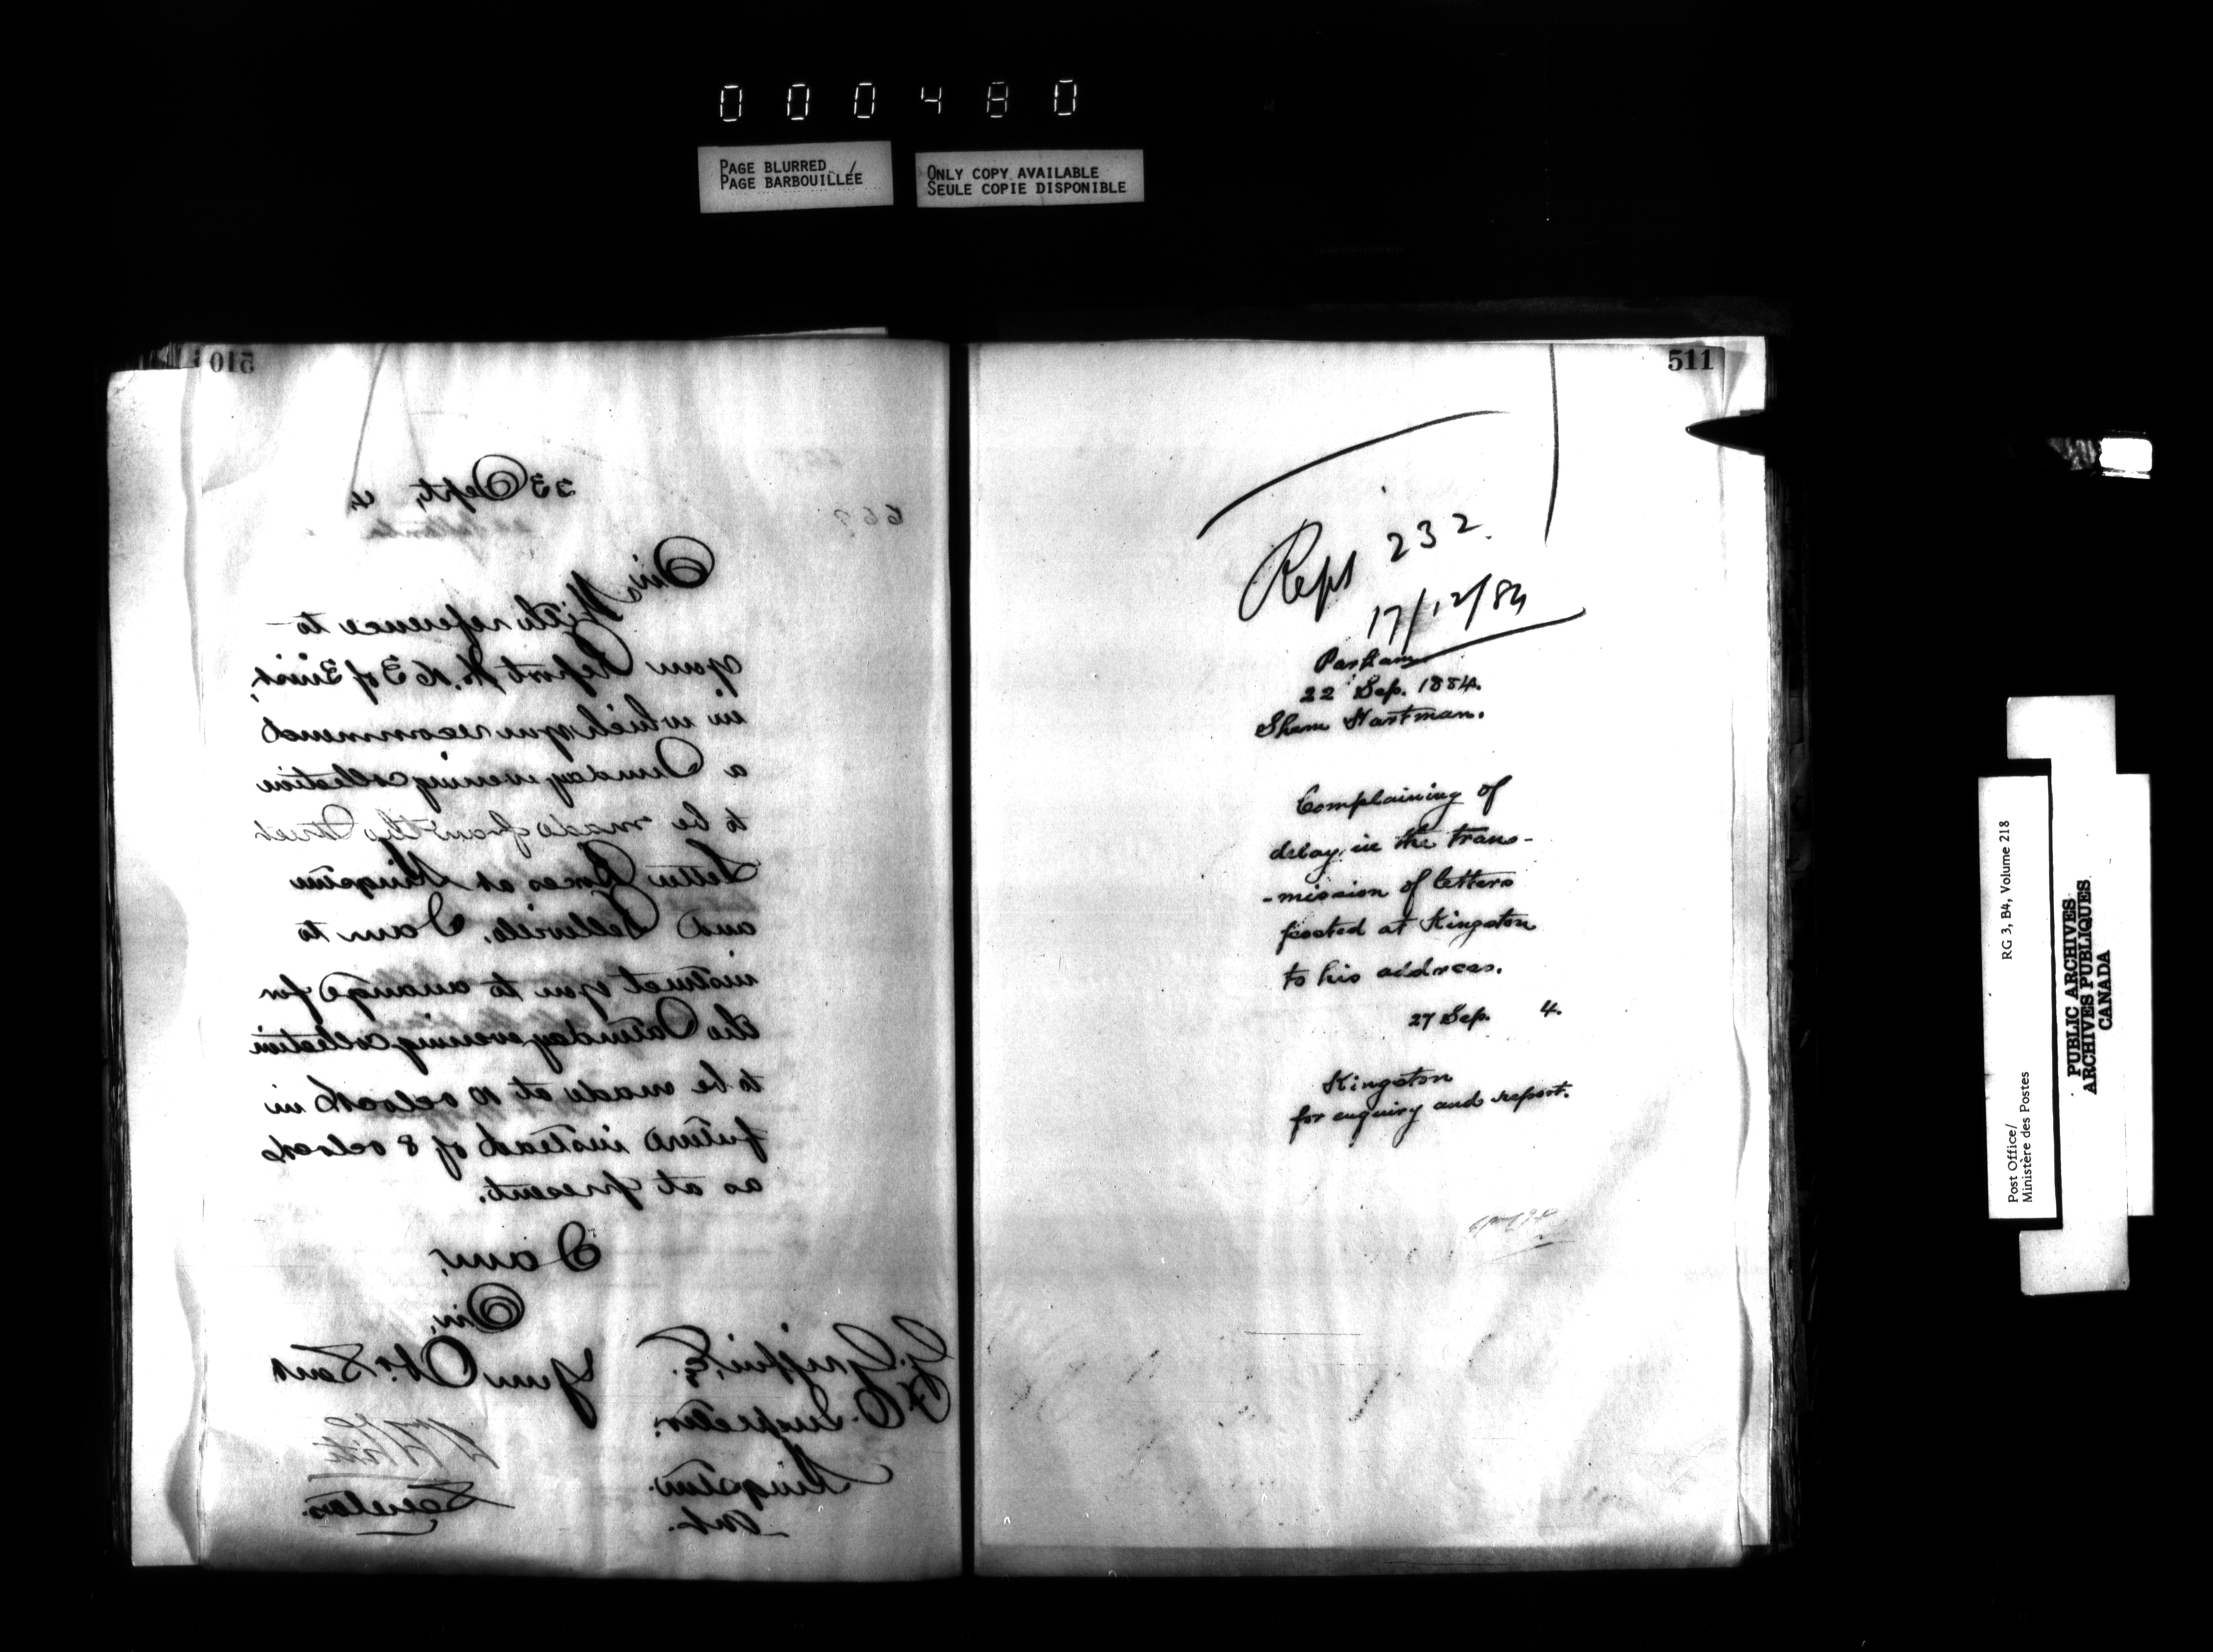 000480
PAGE BLURRED
PAGE BARBOUILLÉE
ONLY COPY AVAILABLE
SEULE COPIE DISPONIBLE
510
668
23 Sept, 4
Sir,
With reference to
your Report No. 163 of 3 inst,
in which you recommend
a Sunday evening collection
to be made from the Street
Letter Boxes at Kingston
and Belleville, I am to
instruct you to arrange for
the Saturday evening collection
to be made at 10 oclock in
future instead of 8 oclock
as at present.
I am,
Sir,
Your Ob. Servt
G. Griffin, Esq.
P. O. Inspector.
Kingston.
Ont.
Wm White
Secretary
511
Rept 232
17/12/84
Parham
22 Sep. 1884.
Sham Hartman.
Complaining of
delay in the trans-
-mission of letters
posted at Kingston
to his address.
27 Sep. 4.
Kingston
for enquiry and report.
Post Office/
Ministère des Postes
RG 3, B4, Volume 218
PUBLIC ARCHIVES
ARCHIVES PUBLIQUES
CANADA